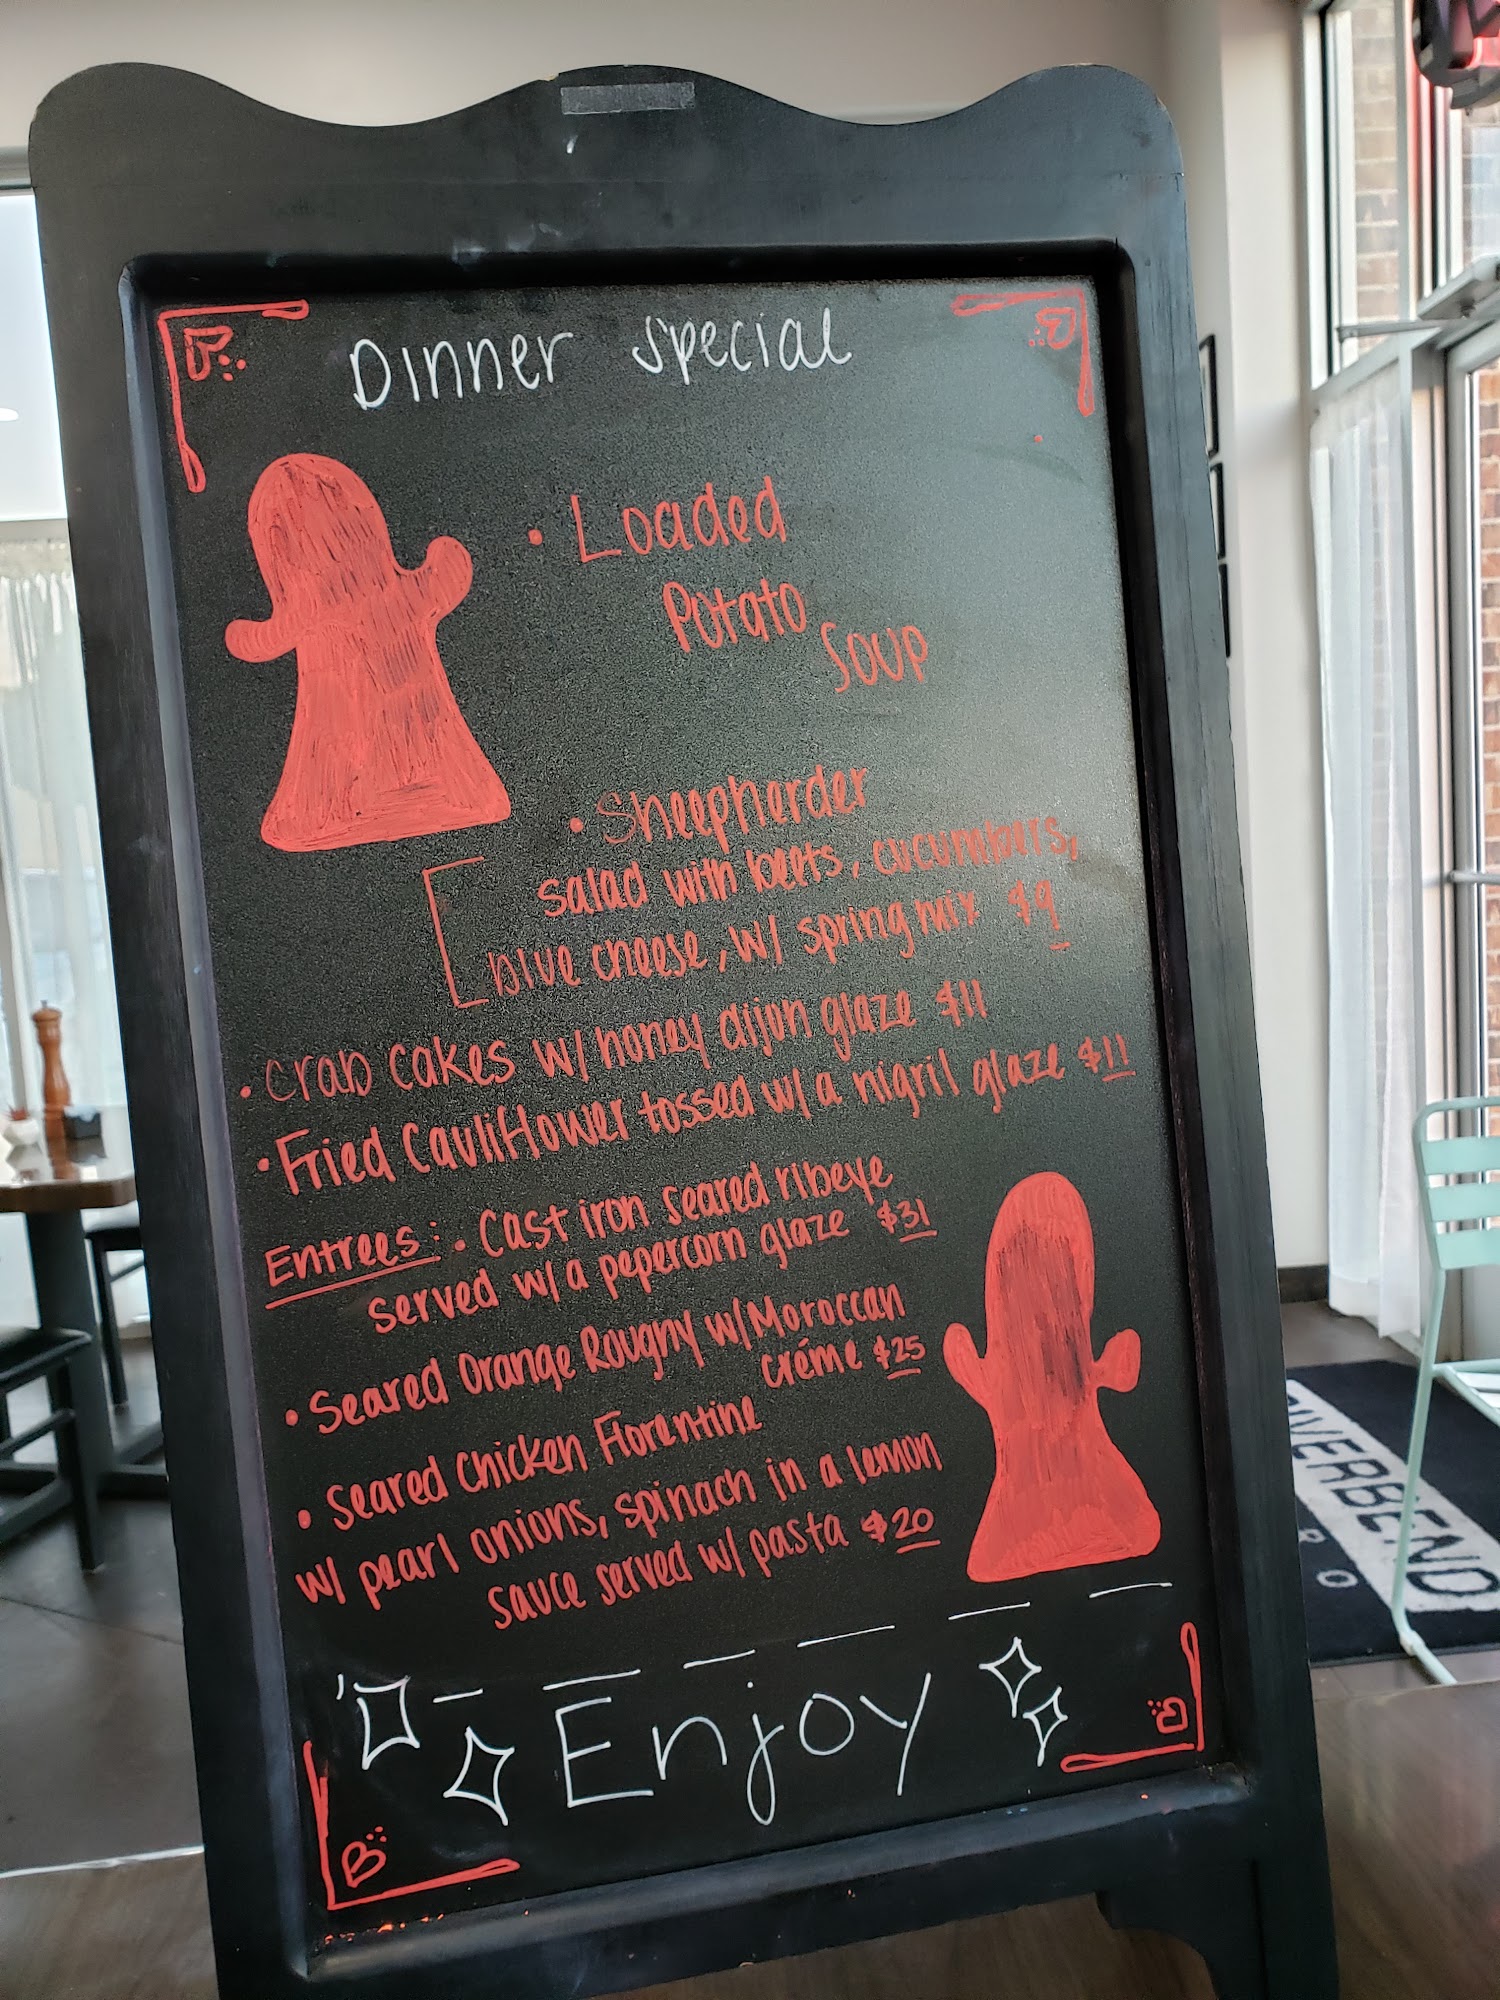 Dinner Special
• Loaded
Potato
Soup
• Sheepherder
salad with beets, cucumbers,
blue cheese, w/ spring mix $9
• Crab cakes w/ honey dijon glaze $11
• Fried Cauliflower tossed w/ a nigril glaze $11
Entrees: • Cast iron seared ribeye
served w/ a pepercorn glaze $31
• Seared Orange Rougny w/ Moroccan
créme $25
• Seared Chicken Florentine
w/ pearl onions, spinach in a lemon
sauce served w/ pasta $20
Enjoy
RIVERBEND